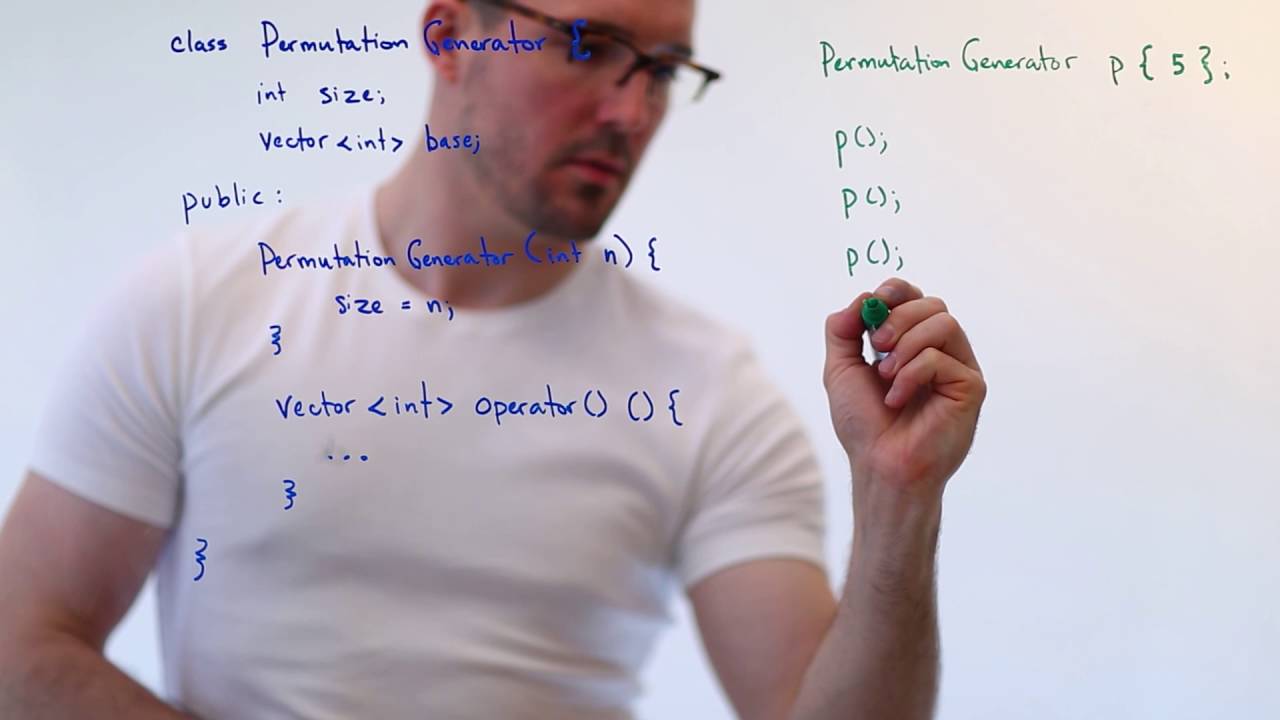 class Permutation Generator {
int size;
vector <int> base;
public:
Permutation Generator (int n) {
size = n;
}
vector <int> operator() () {
...
}
}
Permutation Generator p { 5 };
p();
p();
p();